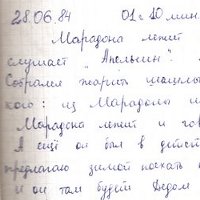 28.06.84 01 г 10 мин.
Марадона лежит
слушает "Апельсин".
Собрался жарить шашлы
кого: из Марадоны и
Марадона лежит и гов
А ещё он был в детст
предлагаю зимой поехать
и он там будет Дедом